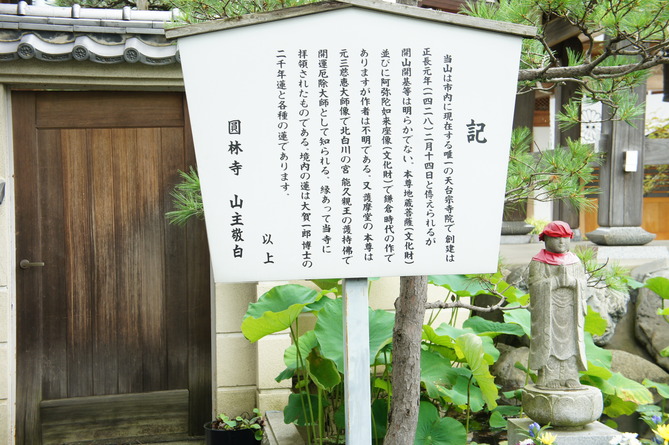 記
当山は市内に現在する唯一の天台宗寺院で創建は
正長元年(一四二八)二月十四日と傳えられるが
開山開基等は明らかでない、本尊地蔵菩薩(文化財)
並びに阿弥陀如来座像(文化財)で鎌倉時代の作で
ありますが作者は不明である。又護摩堂の本尊は
元三慈恵大師像で北白川の宮 能久親王の護持佛で
開運厄除大師として知られる、縁あって当寺に
拝領されたものである、境内の蓮は大賀一郎博士の
二千年蓮と各種の蓮であります。
以上
圓林寺 山主敬白